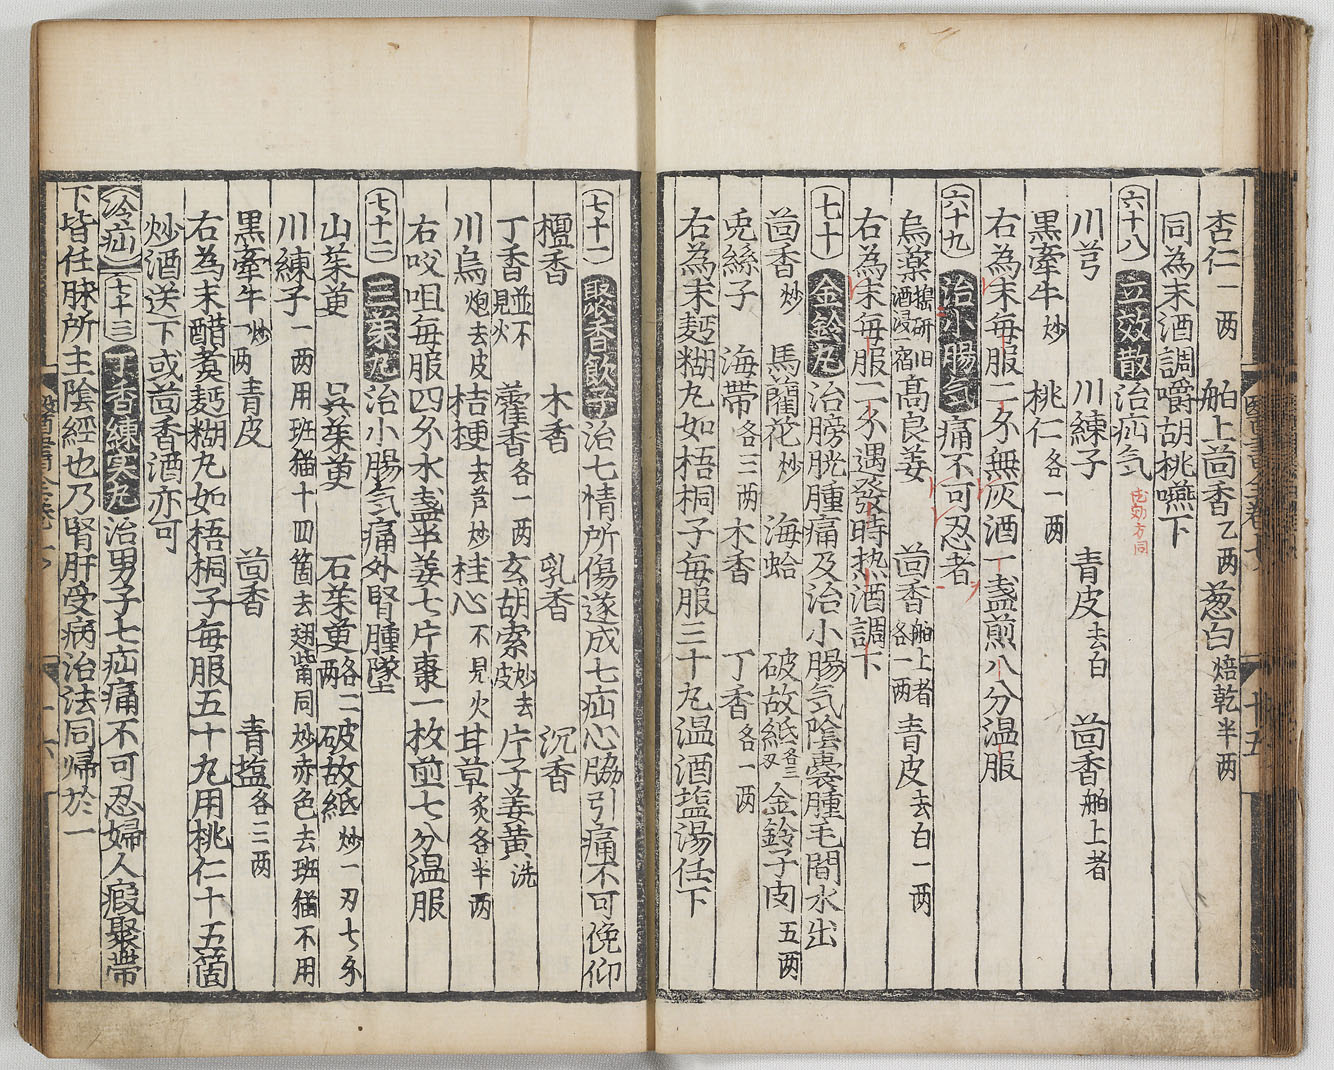 杏仁一两 舶上茴香乙两 葱白焙乾半两
同為末酒調嚼胡桃嚥下
六十八 立效散 治疝气
川芎 川練子 青皮去白 茴香舶上者
黒牽牛炒 桃仁各一两
右為末每服二分無灰酒一盞煎八分温服
六十九 治小腸気 痛不可忍者
烏薬擣研旧酒浸一宿 高良姜 茴香舶上者各一两 青皮去白一两
右為末每服二分遇發時热酒調下
七十 金鈴丸 治膀胱腫痛及治小腸気陰囊腫毛間水出
茴香炒 馬藺花炒 海蛤 破故紙各三刄 金鈴子肉五两
兎絲子 海帶各三两 木香 丁香各一两
右為末麪糊丸如梧桐子每服三十丸温酒塩湯任下
十五
七十一 聚香飲子 治七情所傷遂成七疝心脇引痛不可俛仰
檀香 木香 乳香 沉香
丁香並不見火 藿香各一两 玄胡索炒去皮 片子姜黄洗
川烏炮去皮 桔梗去芦炒 桂心不見火 甘草炙各半两
右㕮咀每服四分水盞半姜七片棗一枚煎七分温服
七十二 三茱丸 治小腸気痛外腎腫墜
山茱萸 呉茱萸 石茱萸各二两 破故紙炒一刄七分
川練子一两用班猫十四箇去翅觜同炒赤色去班猫不用
黒牽牛炒一两 青皮 茴香 青塩各三两
右為末醋煑麪糊丸如梧桐子每服五十九用桃仁十五箇
炒酒送下或茴香酒亦可
冷疝 七十三 丁香練实丸 治男子七疝痛不可忍婦人瘕聚帶
下皆任脉所主陰經也乃腎肝受病治法同歸於一